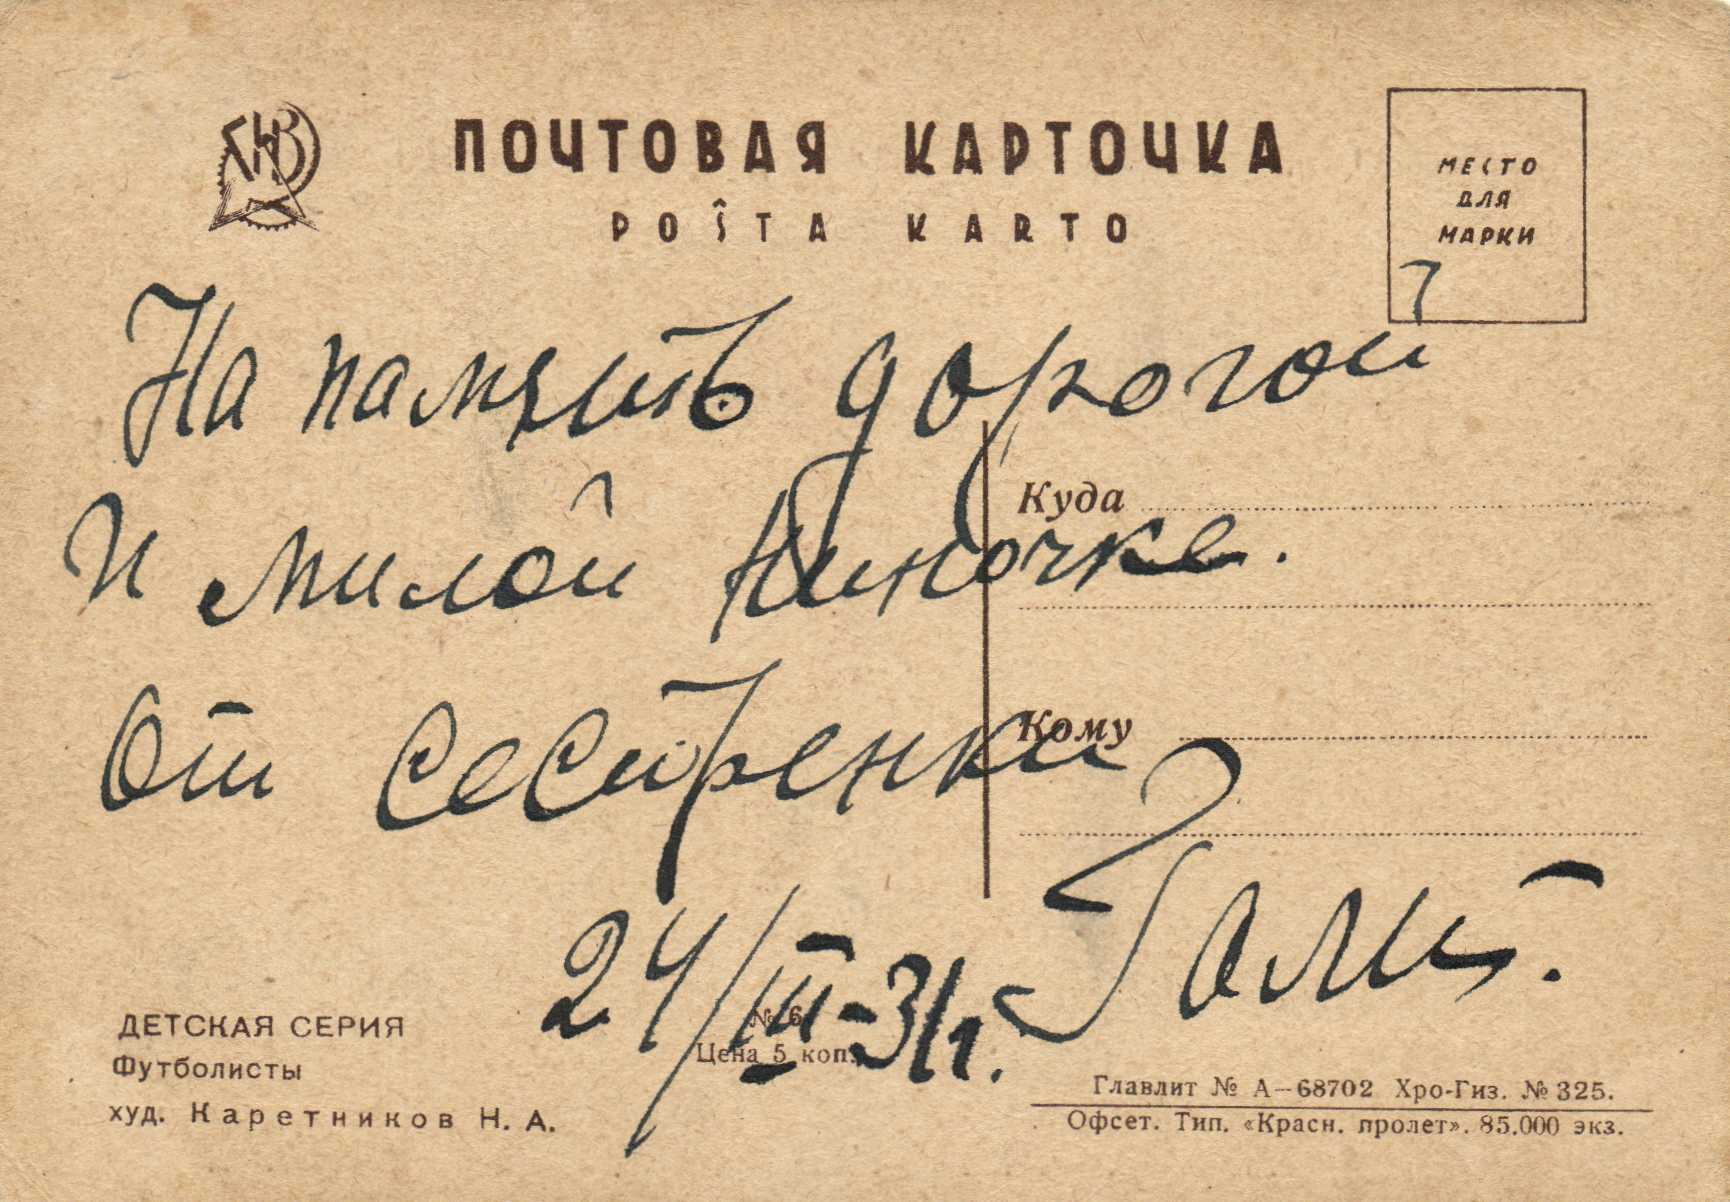 ПОЧТОВАЯ КАРТОЧКА
POŜTA KARTO
МЕСТО
ДЛЯ
МАРКИ
На память дорогой
и милой Ниночке.
От сестренки
24/III-31г.
Куда
Кому
ДЕТСКАЯ СЕРИЯ
Футболисты
худ. Каретников Н. А.
№ 6
Цена 5 коп.
Главлит № А—68702 Хро-Гиз. № 325.
Офсет. Тип. «Красн. пролет». 85.000 экз.